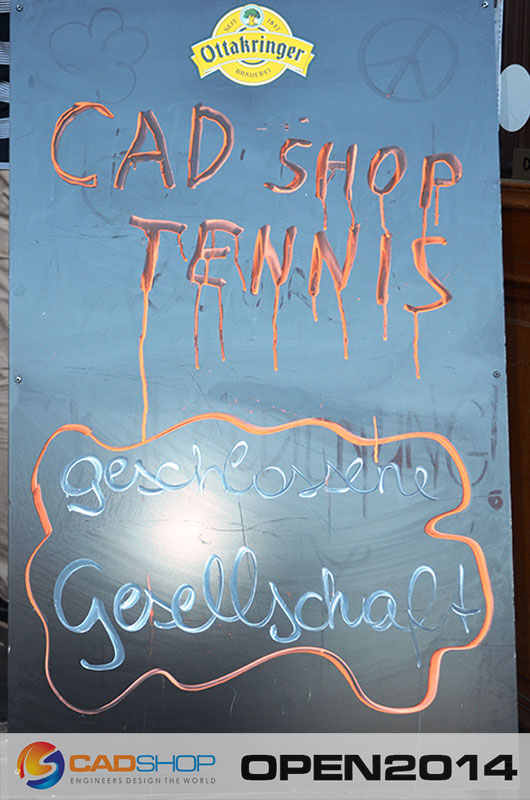 SEIT 1837
Ottakringer
BRAUEREI
CAD SHOP
TENNIS
geschlossene
Gesellschaft
CADSHOP OPEN2014
ENGINEERS DESIGN THE WORLD